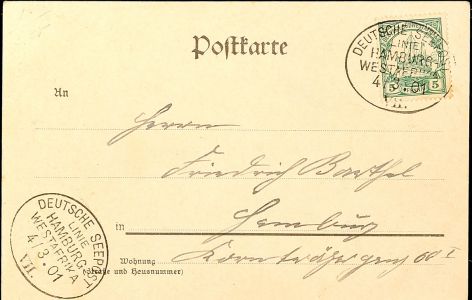 Postkarte
DEUTSCHE SEEPOST
LINIE
HAMBURG-
WESTAFRIKA
4.3.01
VII.
5 5
An
Herrn
Friedrich Barthel
in Hamburg
Wohnung
(Straße und Hausnummer)
DEUTSCHE SEEPOST
LINIE
HAMBURG-
WESTAFRIKA
4.3.01
VII.